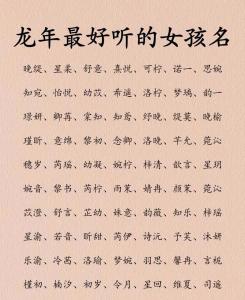 龙年最好听的女孩名
晚缇、星柔、舒意、熹悦、可柠、诺一、思婉
知宛、怡悦、幼苡、希遥、洛柠、梦璃、韵一
璟妍、卿苒、霂宗、知鸢、舒晚、缇莫、晚榆
瑾昕、意绵、黎初、念卿、洛晚、芊允、菀沁
穗岁、芮瑶、幼凝、婉柠、梓清、歆言、星玥
婉音、黎书、芮柠、雨茉、婧冉、颜茉、菀沁
苡澄、舒言、芷幼、姝意、韵薇、知乐、梓瑶
星渝、若音、昕甜、芮伊、诗沅、予芙、沐妍
乐渝、冷茜、洛瑜、梦婉、羽思、馨冉、言栀
槿初、楠汐、初岁、令月、星回、维夏、司遥